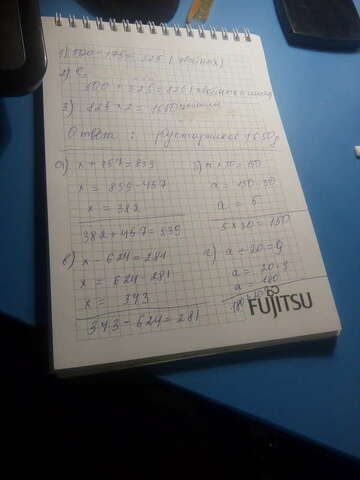 1) 500 - 175 = 325 (хвойных)
2) 
500 + 325 = 825 (хвойных и
3) 825 × 2 = 1650
Ответ: кустарников 1650
а)
x + 457 = 839
x = 839 - 457
x = 382
382 + 457 = 839
б) a × 30 = 150
a = 150 : 30
a = 5
5 × 30 = 150
в)
x - 624 = 281
x = 624 - 281
x = 343
343 - 624 = 281
г) a : 20 = 9
a = 20 · 9
a = 180
FUJITSU